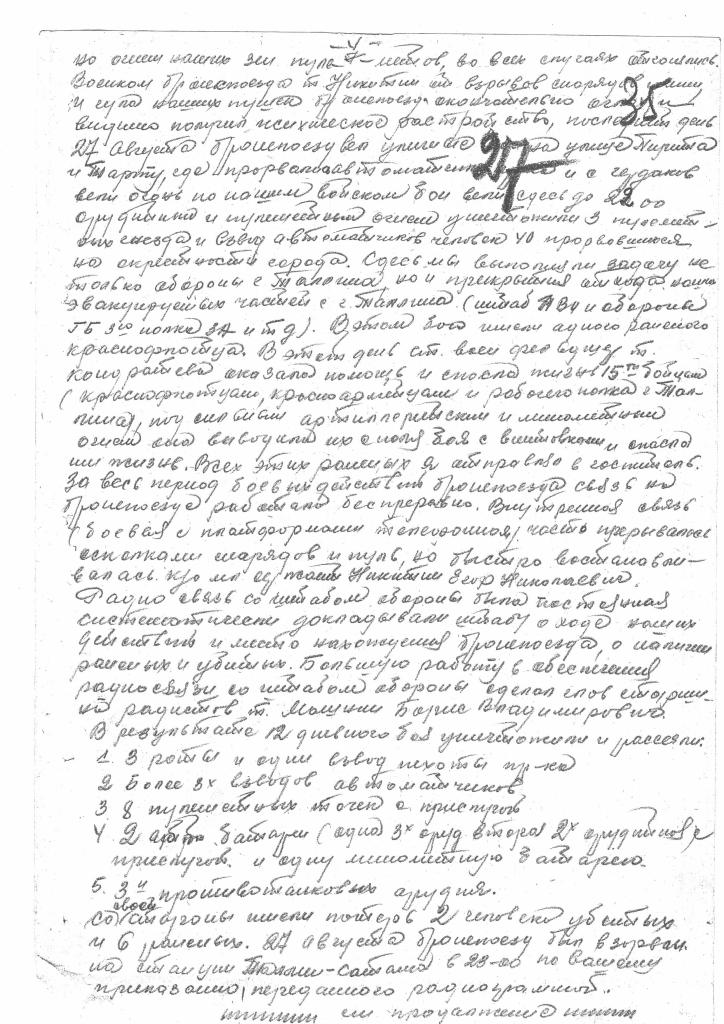 4
но огнем наших зен пулеметов, во всех случаях
Военком бронепоезда т Никитин от взрывов снарядов
и гула наших пушек бронепоезда окончательно
видимо получил психическое расстройство, последний день
35
27 Августа бронепоезд вел на улице
27
и Тарту, где прорвались автоматчики и с чердаков
вели огонь по нашим войскам бои вели здесь до 22 00
орудийным и пулеметным огнем уничтожили 3
и взвод автоматчиков человек 40 прорвавшихся
на окрестности города. Здесь мы выполняли задачу не
только обороны г Таллина, но и прикрытия отхода наших
эвакуируемых частей с г. Таллина. (штаб и обороны
полка ЗА и т д). В этом бою имели одного раненого
краснофлотца. В этот день ст. воен фельдшер т.
Кондратьева оказала помощь и спасла жизнь 15ти бойцам
(краснофлотцам, красноармейцам и рабочего полка г Тал-
лина), под сильным артиллерийским и минометным
огнем она выводила их с поля боя с винтовками и спасла
им жизнь. Всех этих раненых я отправлял в госпиталь.
За весь период боевых действий бронепоезда связь на
бронепоезде работала беспрерывно. Внутренняя связь
(боевая с платформами телефонная) часто прерывалась
осколками снарядов и пуль, но быстро восстанавли-
валась. Никитин Егор Николаевич.
Радио связь со штабом обороны была постоянная
систематически докладывали штабу о ходе наших
действий и место нахождения бронепоезда, о наличии
раненых и убитых. Большую работу в обеспечении
радиосвязи со штабом обороны сделал старши-
на радистов т. Машнин Борис Владимирович.
В результате 12 дневного боя уничтожили и рассеяли:
1. 3 роты и один взвод пехоты пр-ка
2 Более 3х взводов автоматчиков
3 8 пулеметных точек с прислугой
4 2 батареи (одна 3х оруд вторая 2х орудийная с
прислугой. и одну минометную батарею.
5. 3и противотанковых орудия.
Со своей стороны имели потерю 2 человека убитых
и 6 раненых. 27 Августа бронепоезд был взорван
на станции Таллин-Садама в 23-00 по вашему
приказанию, переданного радиограммой.
см продолжение